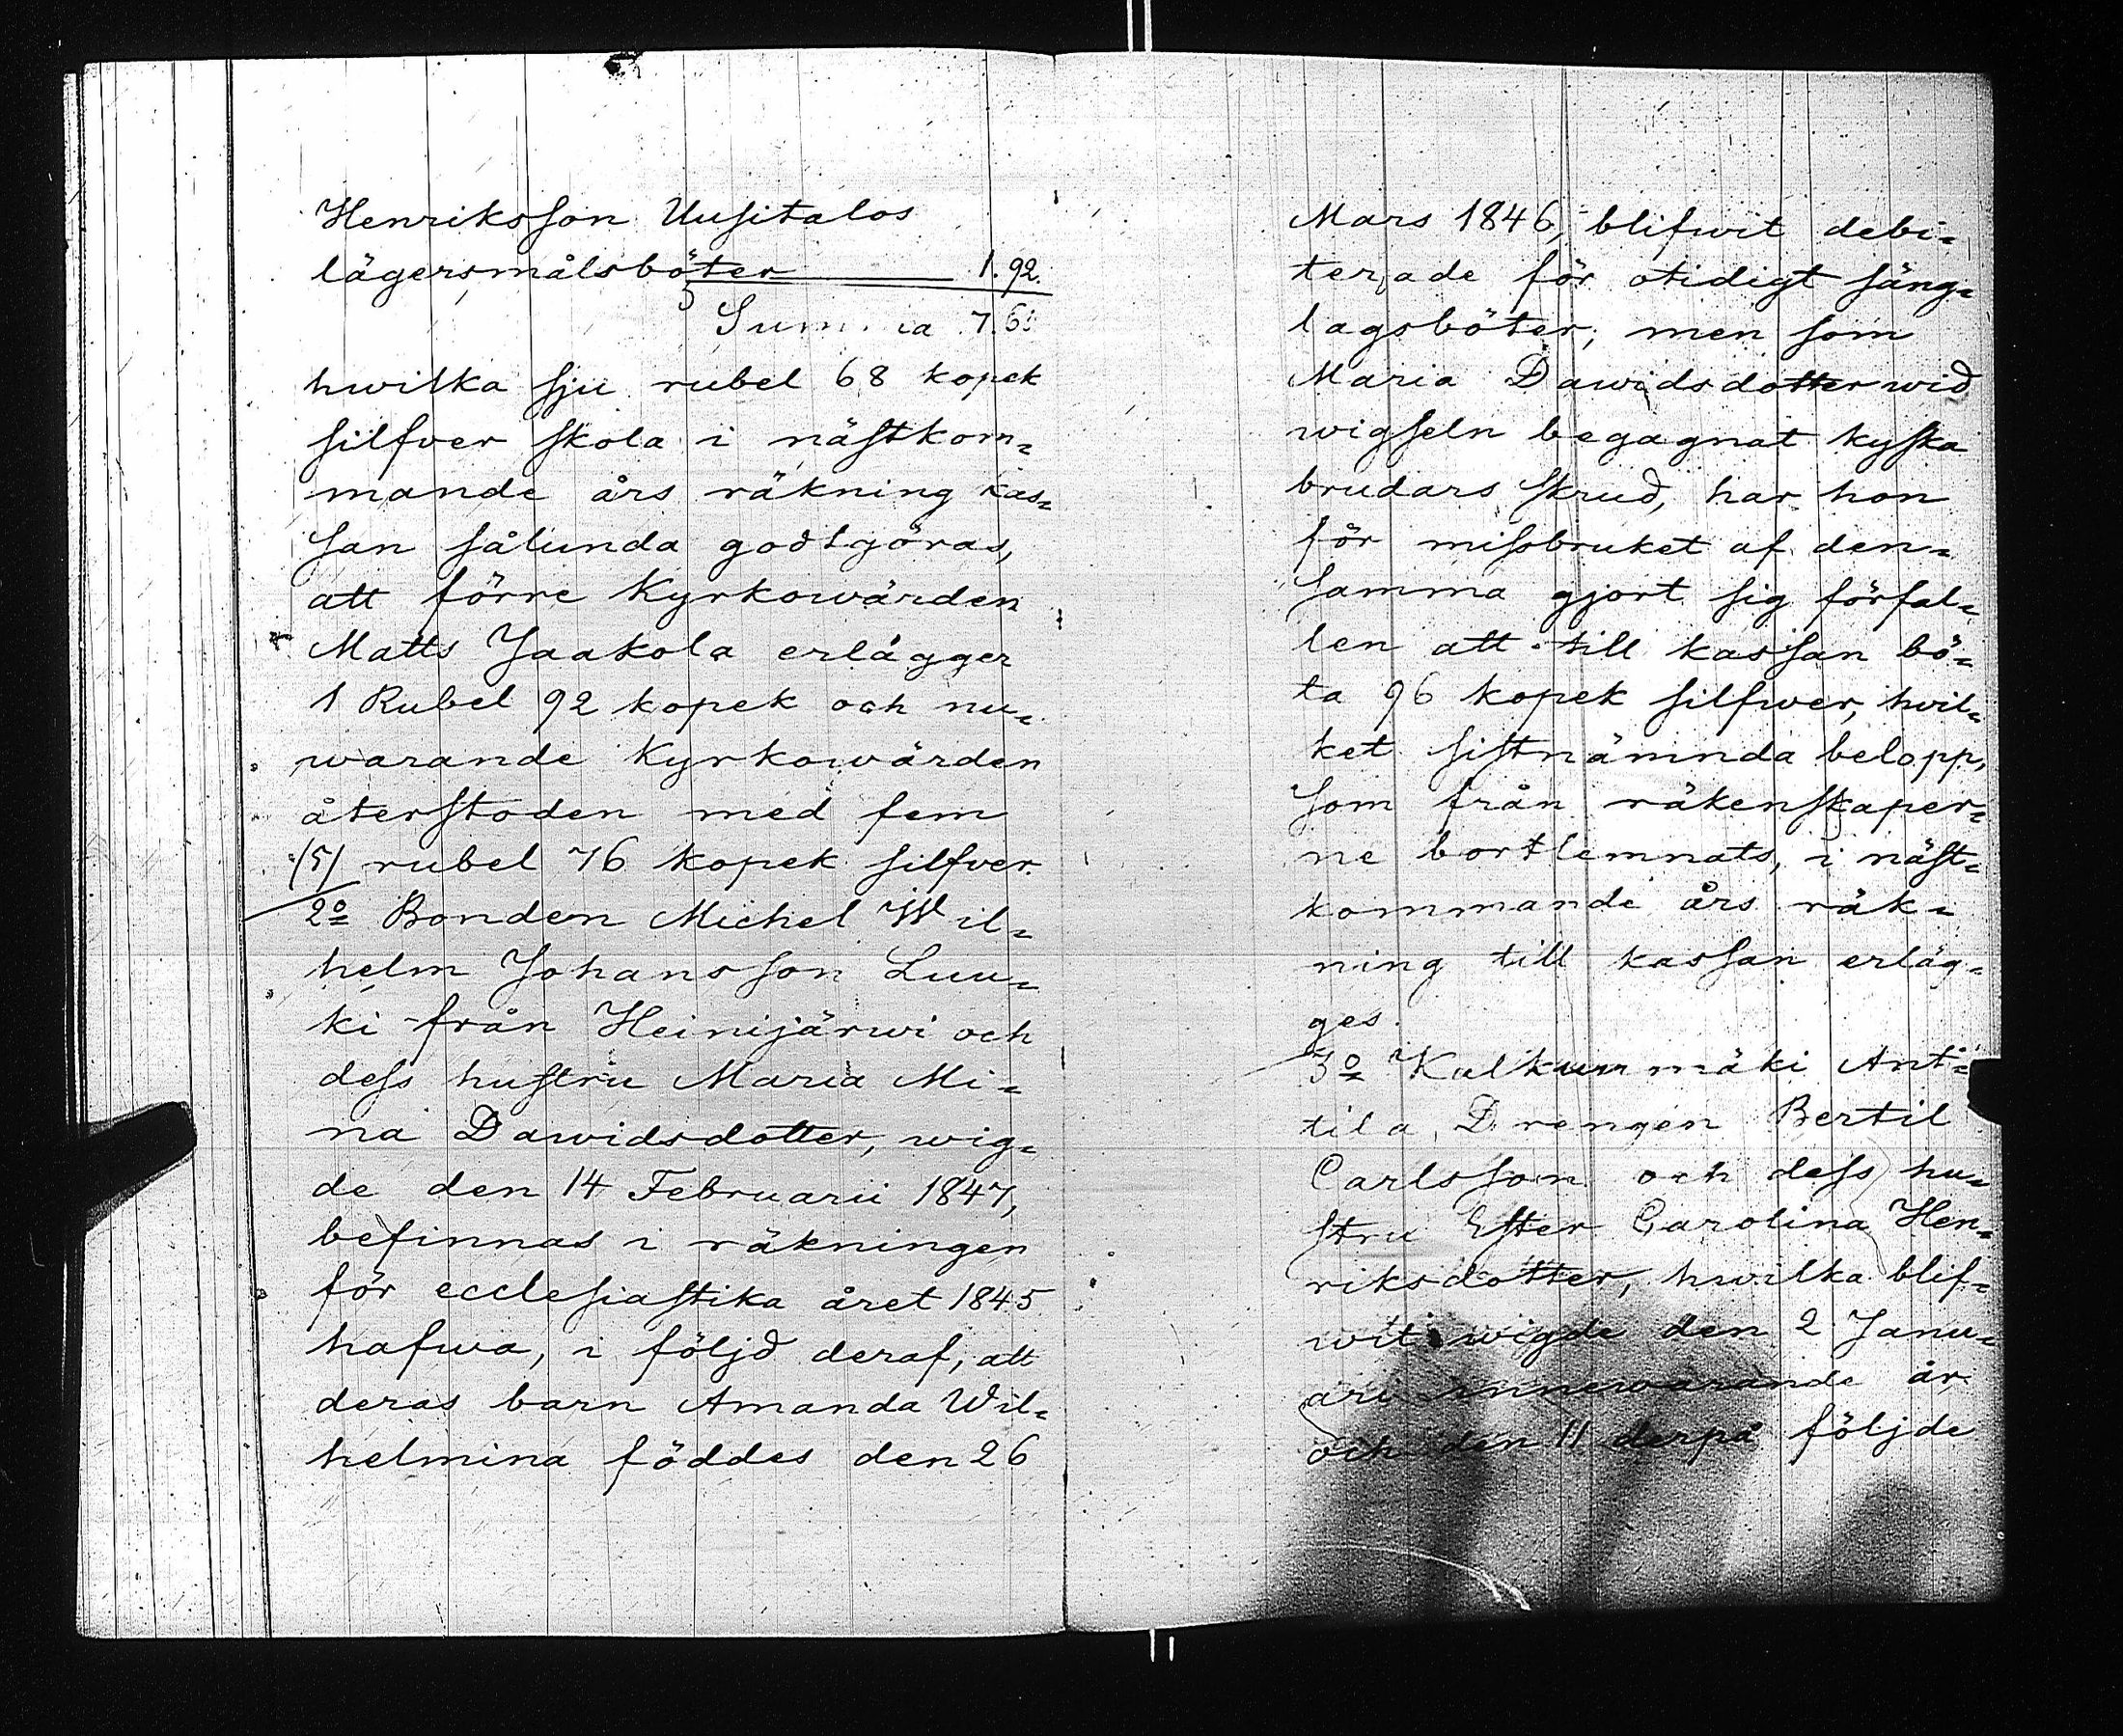 Henriksson Uusitalos
lägersmålsböter 1.92.
Summa 7.68
hwilka sju rubel 68 kopek
silfver skola i nästkom=
mande års räkning kas=
san sålunda godtgöras,
att förre Kyrkowärden
Matts Jaakola erlägger
1 Rubel 92 kopek och nu=
warande Kyrkowärden
återstoden med fem
(5) rubel 76 kopek silfver.
2o Bonden Michel Wil=
helm Johansson Luu=
ki från Heinijärwi och
dess hustru Maria Mi=
na Dawidsdotter, wig=
de den 14 Februarii 1847,
befinnas i räkningen
för ecclesiastika året 1845
hafwa, i följd deraf, att
deras barn Amanda Wil=
helmina föddes den 26
Mars 1846, blifwit debi=
terade för otidigt säng=
lagsböter; men som
Maria Dawidsdotter wid
wigseln begagnat kyska
brudars skrud, har hon
för missbruket af den=
samma gjort sig förfal=
len att till kassan bö=
ta 96 kopek silfwer, hwil=
ket sistnämnda belopp,
som från räkenskaper=
ne bortlemnats, i näst=
kommande års räk=
ning till kassan erläg=
ges.
3o Kalkunmäki Ant=
tila, Drengen Bertil
Carlsson och dess hu=
stru Ester Carolina Hen=
riksdotter, hwilka blif=
wit wigde den 2 Janu=
arii innewarande år
och den 11 derpå följde